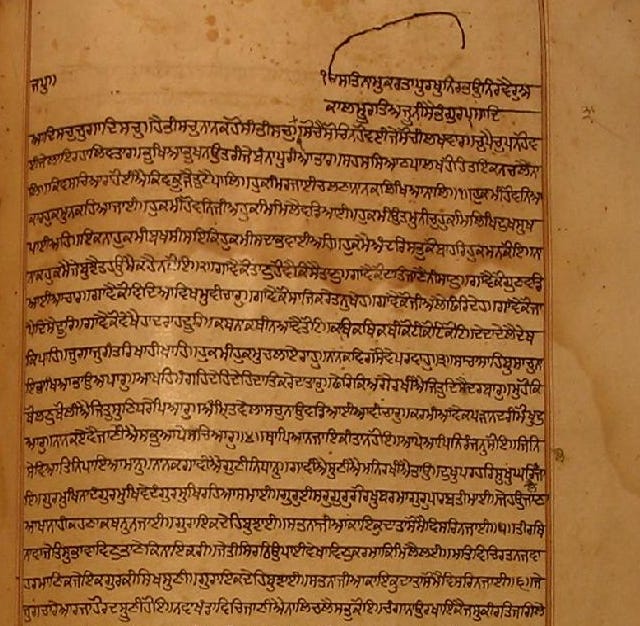 ਜਪੁ॥ ੴਸਤਿਨਾਮੁਕਰਤਾਪੁਰਖੁਨਿਰਭਉਨਿਰਵੈਰੁਅ
ਕਾਲਮੂਰਤਿਅਜੂਨੀਸੈਭੰਗੁਰਪ੍ਰਸਾਦਿ
ਆਦਿਸਚੁਜੁਗਾਦਿਸਚੁ॥ਹੈਭੀਸਚੁਨਾਨਕਹੋਸੀਭੀਸਚੁ॥ਸੋਚੈਸੋਚਿਨਹੋਵਈਜੇਸੋਚੀਲਖਵਾਰ॥ਚੁਪੈਚੁਪਨਹੋਵ
ਈਜੇਲਾਇਰਹਾਲਿਵਤਾਰ॥ਭੁਖਿਆਭੁਖਨਉਤਰੀਜੇਬੰਨਾਪੁਰੀਆਭਾਰ॥ਸਹਸਸਿਆਣਪਾਲਖਹੋਹਿਤਇਕਨਚਲੈਨਾ
ਲਿ॥ਕਿਵਸਚਿਆਰਾਹੋਈਐਕਿਵਕੂੜੈਤੁਟੈਪਾਲਿ॥ਹੁਕਮਿਰਜਾਈਚਲਣਾਨਾਨਕਲਿਖਿਆਨਾਲਿ॥੧॥ਹੁਕਮੀਹੋਵਨਿਆ
ਕਾਰਹੁਕਮੁਨਕਹਿਆਜਾਈ॥ਹੁਕਮੀਹੋਵਨਿਜੀਅਹੁਕਮਿਮਿਲੈਵਡਿਆਈ॥ਹੁਕਮੀਉਤਮੁਨੀਚੁਹੁਕਮਿਲਿਖਿਦੁਖਸੁਖ
ਪਾਈਅਹਿ॥ਇਕਨਾਹੁਕਮੀਬਖਸੀਸਇਕਿਹੁਕਮੀਸਦਾਭਵਾਈਅਹਿ॥ਹੁਕਮੈਅੰਦਰਿਸਭੁਕੋਬਾਹਰਿਹੁਕਮਨਕੋਇ॥ਨਾ
ਨਕਹੁਕਮੈਜੇਬੁਝੈਤਹਉਮੈਕਹੈਨਕੋਇ॥੨॥ਗਾਵੈਕੋਤਾਣੁਹੋਵੈਕਿਸੈਤਾਣੁ॥ਗਾਵੈਕੋਦਾਤਿਜਾਣੈਨੀਸਾਣੁ॥ਗਾਵੈਕੋਗੁਣਵਡਿ
ਆਈਆਚਾਰ॥ਗਾਵੈਕੋਵਿਦਿਆਵਿਖਮੁਵੀਚਾਰੁ॥ਗਾਵੈਕੋਸਾਜਿਕਰੇਤਨੁਖੇਹ॥ਗਾਵੈਕੋਜੀਅਲੈਫਿਰਿਦੇਹ॥ਗਾਵੈਕੋਜਾ
ਪੈਦਿਸੈਦੂਰਿ॥ਗਾਵੈਕੋਵੇਖੈਹਾਦਰਾਹਦੂਰਿ॥ਕਥਨਾਕਥੀਨਆਵੈਤੋਟਿ॥ਕਥਿਕਥਿਕਥੀਕੋਟੀਕੋਟਿਕੋਟਿ॥ਦੇਦਾਦੇਲੈਦੇਥ
ਕਿਪਾਹਿ॥ਜੁਗਾਜੁਗੰਤਰਿਖਾਹੀਖਾਹਿ॥ਹੁਕਮੀਹੁਕਮੁਚਲਾਏਰਾਹੁ॥ਨਾਨਕਵਿਗਸੈਵੇਪਰਵਾਹੁ॥੩॥ਸਾਚਾਸਾਹਿਬੁਸਾਚੁਨਾ
ਇਭਾਖਿਆਭਾਉਅਪਾਰੁ॥ਆਖਹਿਮੰਗਹਿਦੇਹਿਦੇਹਿਦਾਤਿਕਰੇਦਾਤਾਰੁ॥ਫੇਰਿਕਿਅਗੈਰਖੀਐਜਿਤੁਦਿਸੈਦਰਬਾਰੁ॥ਮੁਹੌਕਿ
ਬੋਲਣੁਬੋਲੀਐਜਿਤੁਸੁਣਿਧਰੇਪਿਆਰੁ॥ਅੰਮ੍ਰਿਤਵੇਲਾਸਚੁਨਾਉਵਡਿਆਈਵੀਚਾਰੁ॥ਕਰਮੀਆਵੈਕਪੜਾਨਦਰੀਮੋਖੁਦੁ
ਆਰੁ॥ਨਾਨਕਏਵੈਜਾਣੀਐਸਭੁਆਪੇਸਚਿਆਰੁ॥੪॥ਥਾਪਿਆਨਜਾਇਕੀਤਾਨਹੋਇ॥ਆਪੇਆਪਿਨਿਰੰਜਨੁਸੋਇ॥ਜਿਨਿ
ਸੇਵਿਆਤਿਨਿਪਾਇਆਮਾਨੁ॥ਨਾਨਕਗਾਵੀਐਗੁਣੀਨਿਧਾਨੁ॥ਗਾਵੀਐਸੁਣੀਐਮਨਿਰਖੀਐਭਾਉ॥ਦੁਖੁਪਰਹਰਿਸੁਖੁਘਰਿਲੈਜਾ
ਇ॥ਗੁਰਮੁਖਿਨਾਦੰਗੁਰਮੁਖਿਵੇਦੰਗੁਰਮੁਖਿਰਹਿਆਸਮਾਈ॥ਗੁਰੁਈਸਰੁਗੁਰੁਗੋਰਖੁਬਰਮਾਗੁਰੁਪਾਰਬਤੀਮਾਈ॥ਜੇਹਉਜਾਣਾ
ਆਖਾਨਾਹੀਕਹਣਾਕਥਨੁਨਜਾਈ॥ਗੁਰਾਇਕਦੇਹਿਬੁਝਾਈ॥ਸਭਨਾਜੀਆਕਾਇਕੁਦਾਤਾਸੋਮੈਵਿਸਰਿਨਜਾਈ॥੫॥ਤੀਰਥਿ
ਨਾਵਾਜੇਤਿਸੁਭਾਵਾਵਿਣੁਭਾਣੇਕਿਨਾਇਕਰੀ॥ਜੇਤੀਸਿਰਠਿਉਪਾਈਵੇਖਾਵਿਣੁਕਰਮਾਕਿਮਿਲੈਲਈ॥ਮਤਿਵਿਚਿਰਤਨਜਵਾ
ਹਰਮਾਣਿਕਜੇਇਕਗੁਰਕੀਸਿਖਸੁਣੀ॥ਗੁਰਾਇਕਦੇਹਿਬੁਝਾਈ॥ਸਭਨਾਜੀਆਕਾਇਕੁਦਾਤਾਸੋਮੈਵਿਸਰਿਨਜਾਈ॥੬॥ਜੇ
ਜੁਗਚਾਰੇਆਰਜਾਹੋਰਦਸੂਣੀਹੋਇ॥ਨਵਾਖੰਡਾਵਿਚਿਜਾਣੀਐਨਾਲਿਚਲੈਸਭੁਕੋਇ॥ਚੰਗਾਨਾਉਰਖਾਇਕੈਜਸੁਕੀਰਤਿਜਗਿਲੇ